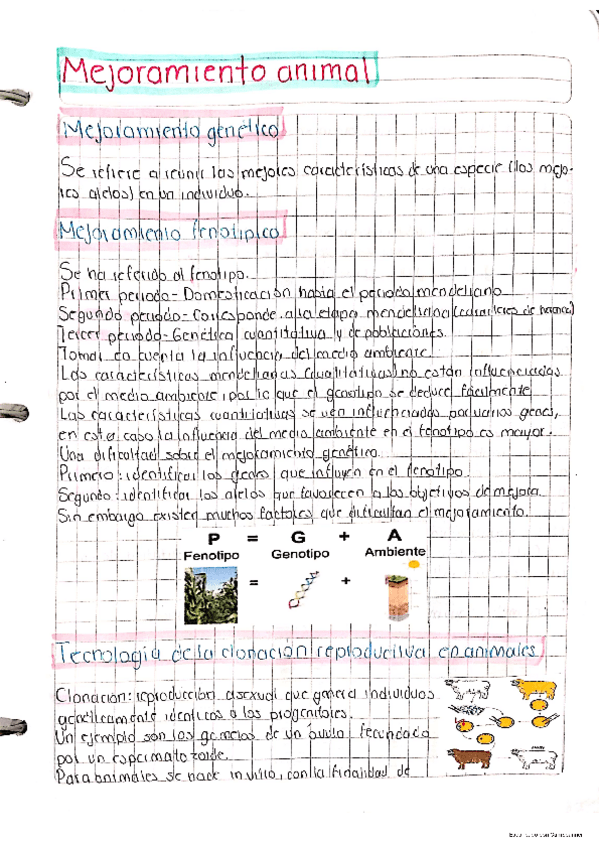 Mejoramiento animal
Mejoramiento genético
Se refiere a reunir las mejores características de una especie (los mejo-
res alelos) en un individuo.
Mejoramiento fenotípico
Se ha referido al fenotipo.
Primer periodo- Domesticación hasta el periodo mendeliano
Segundo periodo- Corresponde a la etapa mendeliana (caracteres de herencia)
Tercer periodo- Genética cuantitativa y de poblaciones.
Tomar en cuenta la influencia del medio ambiente
Las características mendelianas (cualitativas) no están influenciadas
por el medio ambiente por lo que el genotipo se deduce fácilmente
Las características cuantitativas se ven influenciadas por varios genes,
en este caso la influencia del medio ambiente en el fenotipo es mayor.
Una dificultad sobre el mejoramiento genético.
Primero: identificar los genes que influyen en el fenotipo.
Segundo: identificar los alelos que favorecen a los objetivos de mejora.
Sin embargo existen muchos factores que dificultan el mejoramiento.
P = G + A
Fenotipo Genotipo Ambiente
= +
Tecnología de la clonación reproductiva en animales
Clonación: reproducción asexual que genera individuos
genéticamente identicos a los progenitores.
Un ejemplo son los gemelos de un óvulo fecundado
por un espermatozoide.
Para animales se hace in vitro, con la finalidad de